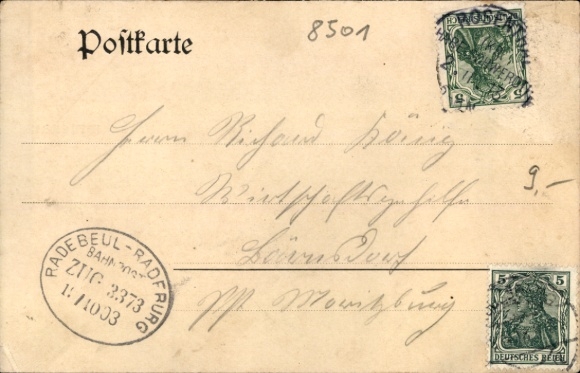 8501
Postkarte
Herrn Richard König
Wirtschaftsgehilfe
9,-
Bärnsdorf
pp Moritzburg
RADEBEUL-RADEBURG
BAHNPOST
ZUG 3373
10 03
5 5
DEUTSCHES REICH